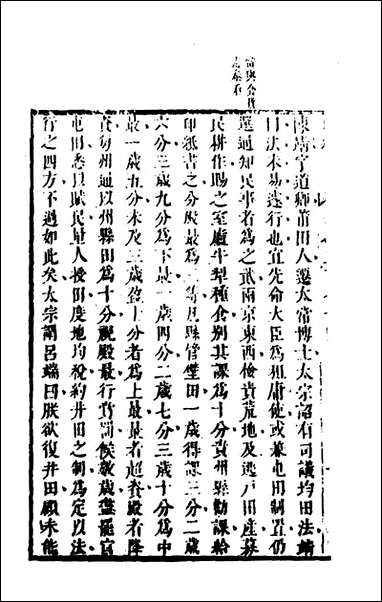 當與食貨
志參看
陳靖字道卿莆田人遷太常博士太宗詔有司議均田法靖
曰法未易遽行也宜先命大臣爲租庸使或兼屯田制置仍
選通知民事者爲之貳兩京東西檢責荒地及逃戸田產募
民耕作賜之室廬牛犁種食別其課爲十分責州縣勸課給
印紙書之分殿最爲三等凡縣管墾田一歲得課三分二歲
六分三歲九分爲下最一歲四分二歲七分三歲十分爲中
最一歲五分未及三歲盈十分者爲上最最者超資殿者降
資每州通以州縣田爲十分視殿最行賞罰候數歲盡罷官
屯田悉以賦民量人授田度地均稅約井田之制爲定以法
行之四方不過如此矣太宗謂呂端曰朕欲復井田顧未能